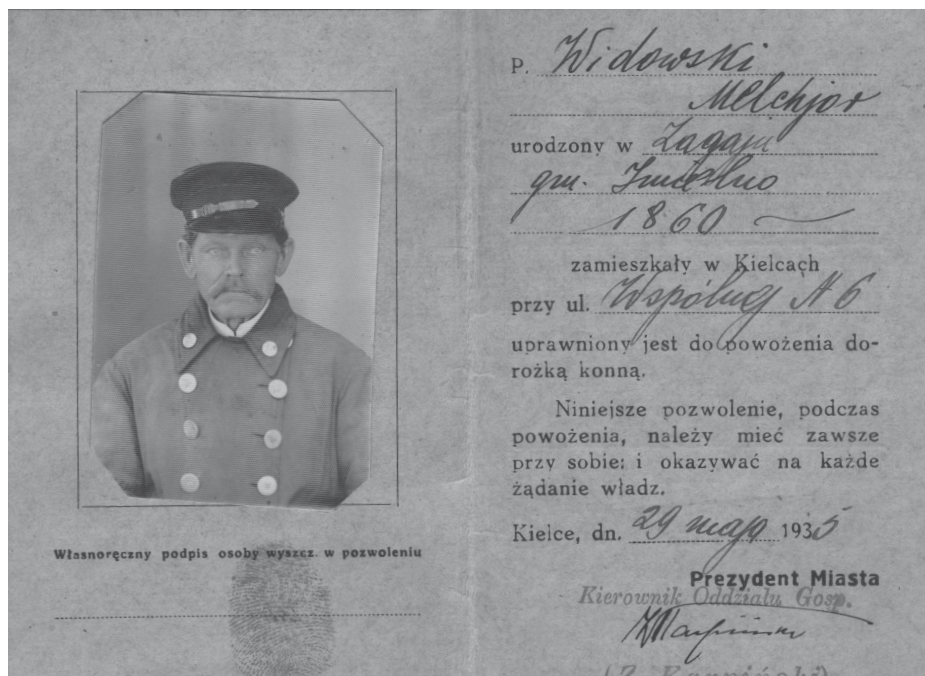 Własnoręczny podpis osoby wyszcz. w pozwoleniu
P. Widowski
Melchjor
urodzony w Zagaju
gm. Imielno
1860
zamieszkały w Kielcach
przy ul. Wspólnej N 6
uprawniony jest do powożenia do-
rożką konną.
Niniejsze pozwolenie, podczas
powożenia, należy mieć zawsze
przy sobie; i okazywać na każde
żądanie władz.
Kielce, dn. 29 maja 1935
Prezydent Miasta
Kierownik Oddziału Gosp.